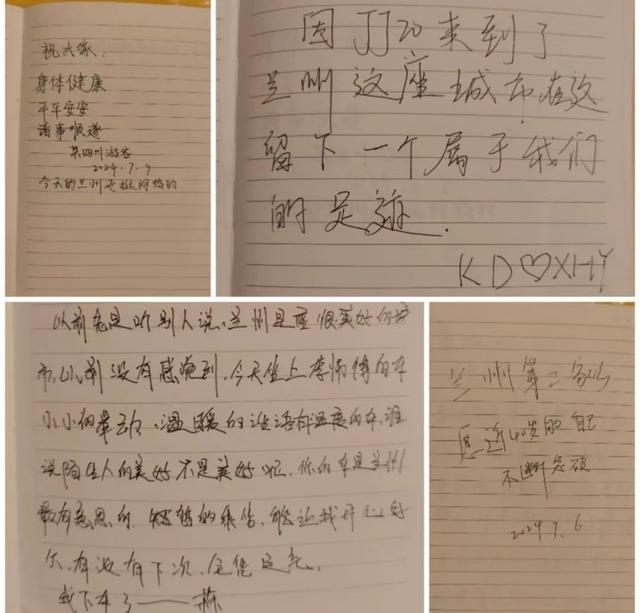 祝大家:
身体健康
平平安安
诸事顺遂
某四川游客
2024.7.4
今天的兰州是
因JJ20来到了
兰州这座城市在这
留下一个属于我们
的足迹.
KD♡XHY
以前总是听别人说,兰州是座很美好的城
市,以前没有感觉到,今天坐上李师傅的车
小小的举动,温暖的
说陌生人的美好不是美好呢,你的车是兰州
最有意思的,短暂的
久,有没有下次,全凭运气,
我下车了——
兰州第二
愿近40岁的自己
不断突破
2024.7.6